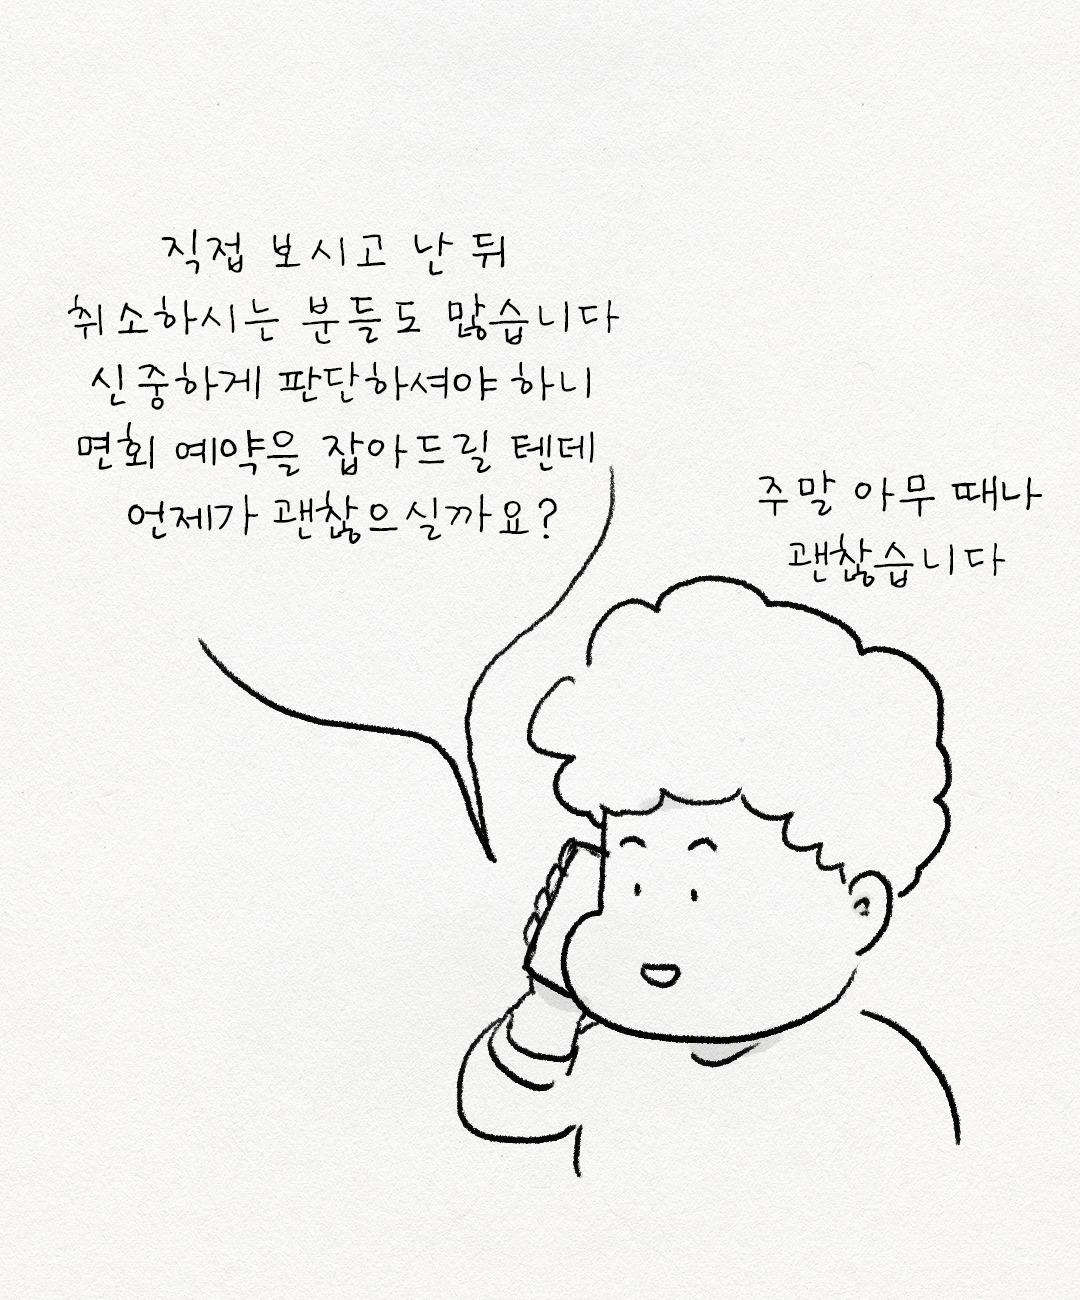 직접 보시고 난 뒤
취소하시는 분들도 많습니다
신중하게 판단하셔야 하니
면회 예약을 잡아드릴 텐데
언제가 괜찮으실까요?
주말 아무 때나
괜찮습니다